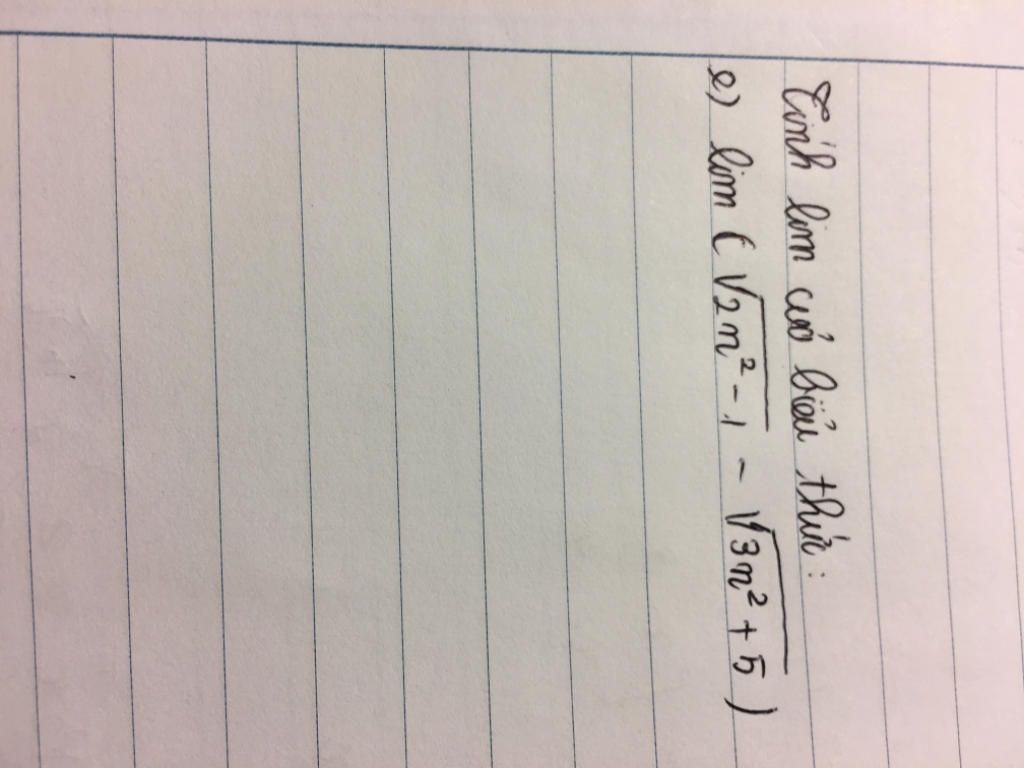 Tính lim của biểu thức :
e) lim ( √2n² - 1 - √3n² + 5 )